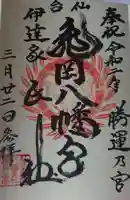 奉祝 令和二年
勝運乃宮
仙台
亀岡八幡宮
伊達家
社
三月廿二日参拝